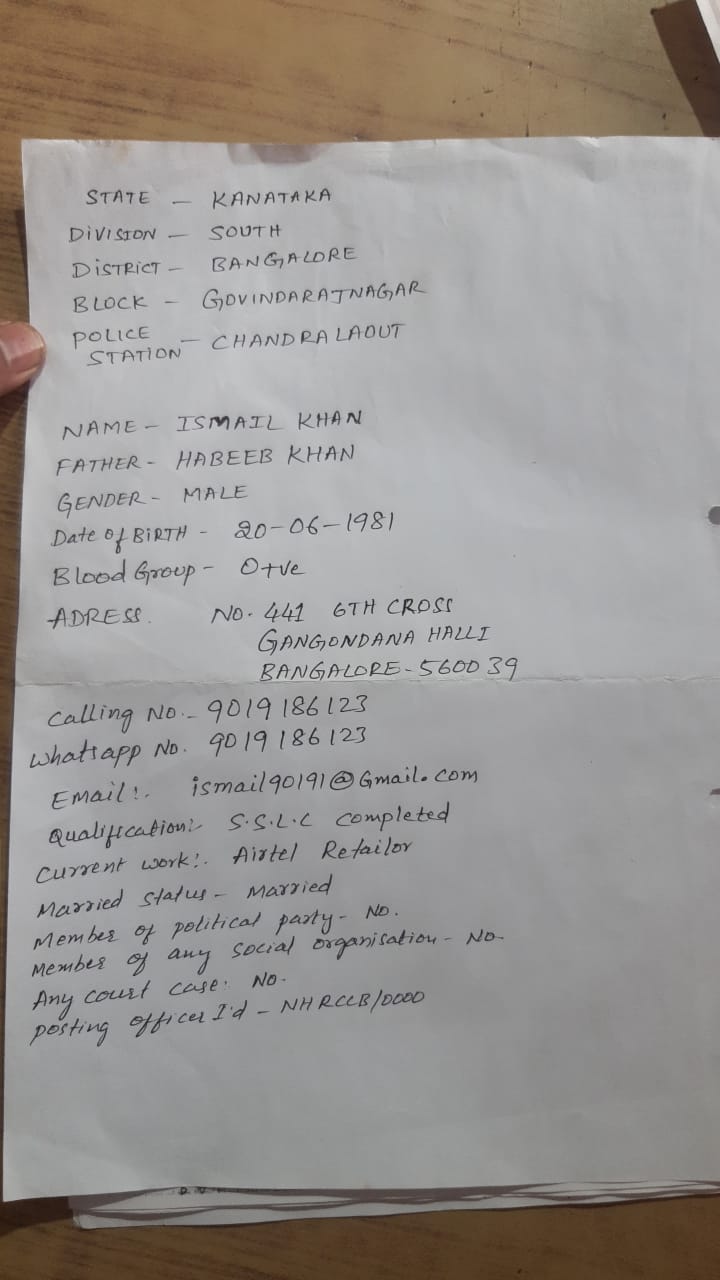 STATE - KANATAKA
DIVISION - SOUTH
DISTRICT - BANGALORE
BLOCK - GOVINDARAJNAGAR
POLICE STATION - CHANDRA LAOUT
NAME - ISMAIL KHAN
FATHER - HABEEB KHAN
GENDER - MALE
Date of BIRTH - 20-06-1981
Blood Group - O+ve
ADRESS. NO. 441 6TH CROSS
GANGONDANA HALLI
BANGALORE - 560039
Calling No. - 9019186123
Whatsapp No. 9019186123
Email:. ismail90191@Gmail.com
Qualification:- S.S.L.C completed
Current work:. Airtel Retailor
Married status - Married
Member of political party - No.
Member of any social organisation - No-
Any court case: No-
posting officer I'd - NHRCCB/0000